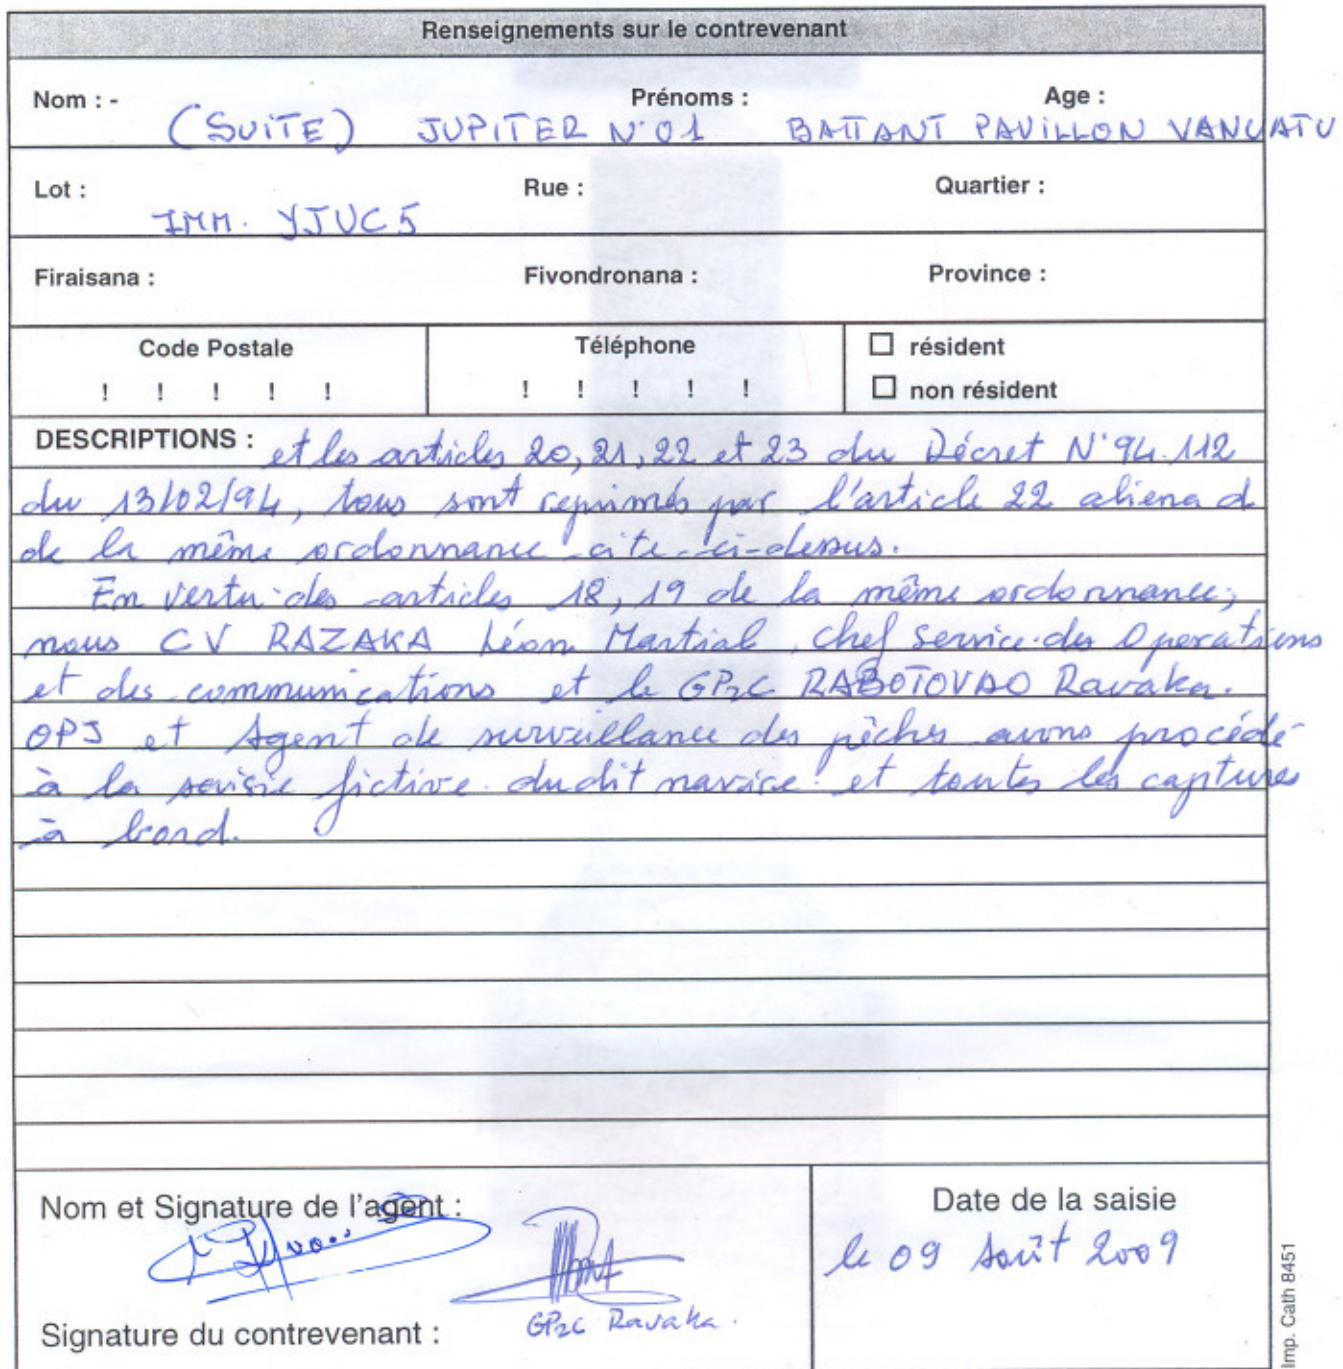 Renseignements sur le contrevenant
Nom : - Prénoms : Age :
(SUITE) JUPITER N°01 BATTANT PAVILLON VANUATU
Lot : Rue : Quartier :
IMM. YJUC5
Firaisana : Fivondronana : Province :
Code Postale Téléphone résident
! ! ! ! ! ! ! ! ! ! non résident
DESCRIPTIONS : et les articles 20, 21, 22 et 23 du Décret N°94.112
du 13/02/94, tous sont reprimés par l'article 22 aliena d
de la même ordonnance cite-ci-dessus.
En vertu des articles 18, 19 de la même ordonnance,
nous CV RAZAKA Léon Martial, Chef Service des Operations
et des communications et le GP2C RABOTOVAO Ravaka.
OPJ et Agent de surveillance des pêches avons procédé
à la saisie fictive dudit navire et toutes les captures
à bord.
Nom et Signature de l'agent : Date de la saisie
le 09 Août 2009
GP2C Ravaka.
Signature du contrevenant :
Imp. Cath 8451